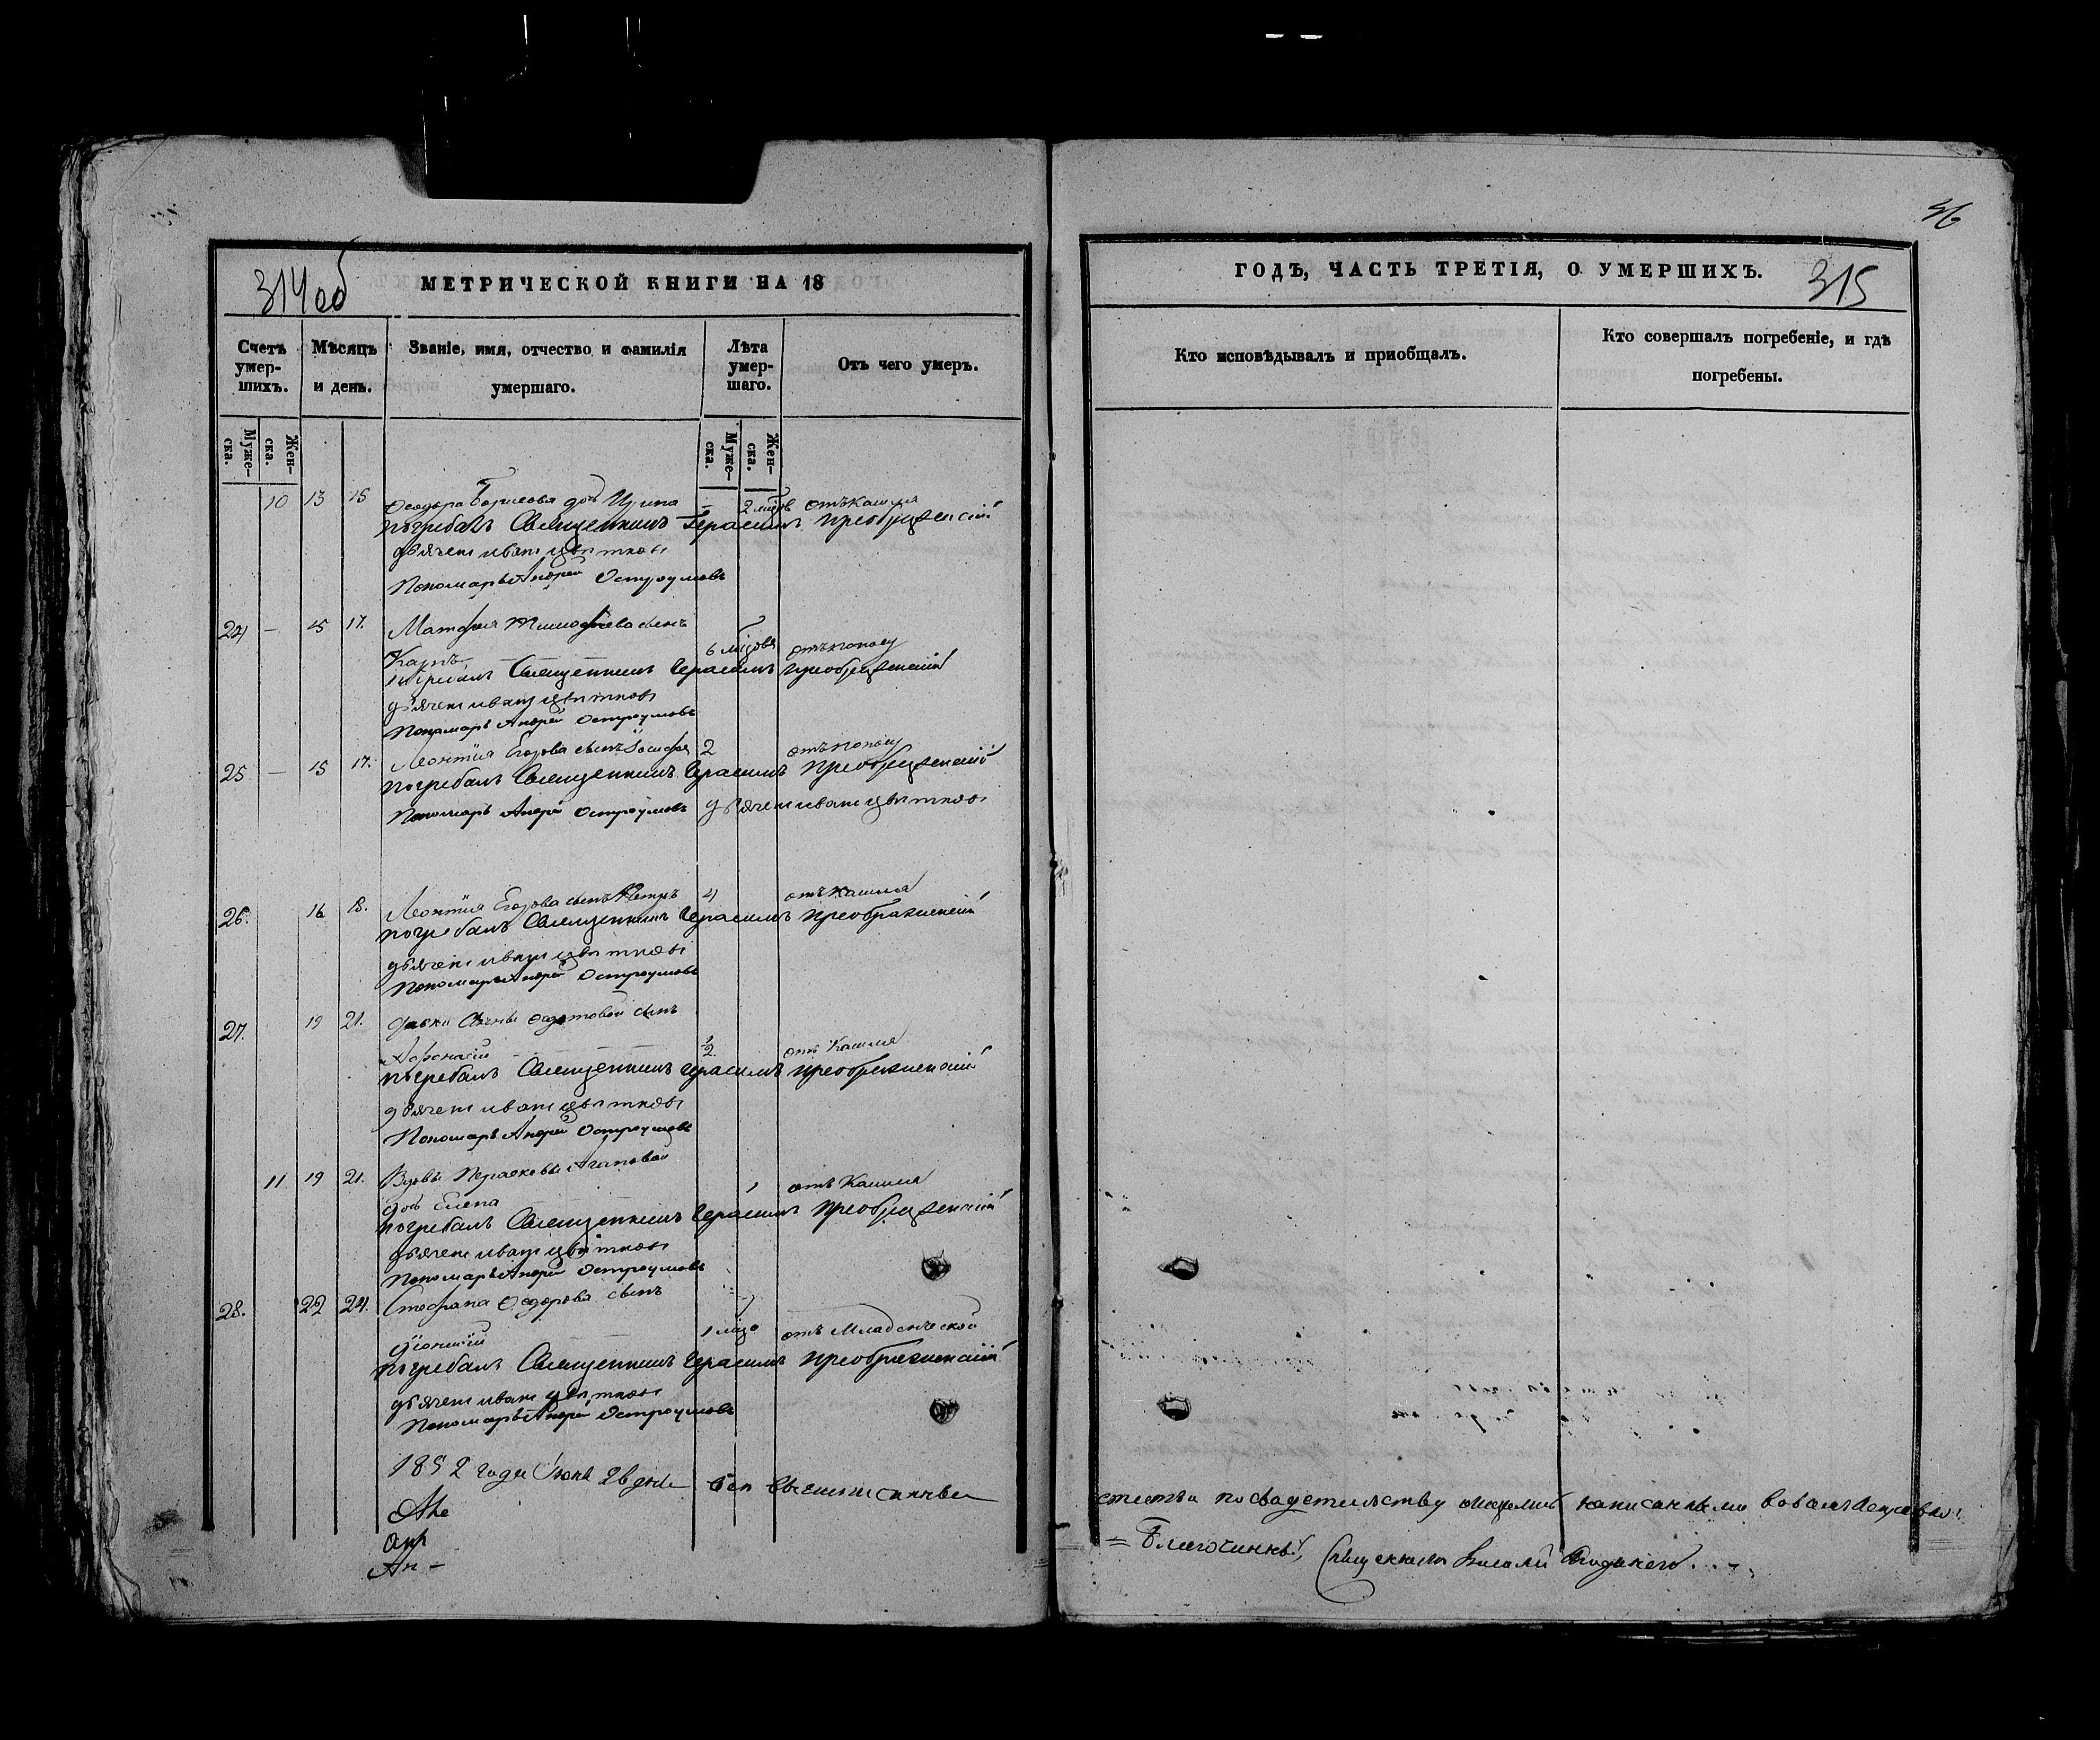 314 об
МЕТРИЧЕСКОЙ КНИГИ НА 18
Счетъ умер-шихъ.
Мѣсяцъ и день.
Званіе, имя, отчество и фамилія умершаго.
Лѣта умер-шаго.
Отъ чего умеръ.
Муже-ска.
Жен-ска.
Муже-ска.
Жен-ска.
10 13 15 Феодора Борисова дочь Ирина 2 отъ Кашля
погребалъ Священникъ Герасимъ Преображенскій
дьячекъ иванъ цвѣтковъ
Пономарь Андрей Остроумовъ
24 — 15 17. Матфея Тимофѣева сынъ
Карпъ 6 отъ поносу
погребалъ Священникъ Герасимъ Преображенскій
дьячекъ иванъ цвѣтковъ
Пономарь Андрей Остроумовъ
25 — 15 17. Леонтія Егорова сынъ Іосифъ 2 отъ поносу
погребалъ Священникъ Герасимъ Преображенскій
Пономарь Андрей Остроумовъ дьячекъ иванъ цвѣтковъ
26. 16 18. Леонтія Егорова сынъ Петръ 4 отъ Кашля
погребалъ Священникъ Герасимъ Преображенскій
дьячекъ иванъ цвѣтковъ
Пономарь Андрей Остроумовъ
27. 19 21. сынъ
Афонасій отъ Кашля
погребалъ Священникъ Герасимъ Преображенскій
дьячекъ иванъ цвѣтковъ
Пономарь Андрей Остроумовъ
11. 19 21. Вдовы Параскевы Агаповой
дочь Елена 1 отъ Кашля
погребалъ Священникъ Герасимъ Преображенскій
дьячекъ иванъ цвѣтковъ
Пономарь Андрей Остроумовъ
28. 22 24. Стефана Федорова сынъ
Діонисій 1 отъ Младенческой
погребалъ Священникъ Герасимъ Преображенскій
дьячекъ иванъ цвѣтковъ
Пономарь Андрей Остроумовъ
1852 года Іюня 26 дня
36
ГОДЪ, ЧАСТЬ ТРЕТІЯ, О УМЕРШИХЪ.
315
Кто исповѣдывалъ и пріобщалъ.
Кто совершалъ погребеніе, и гдѣ погребены.
по свидетельству
Благочинный, Священникъ